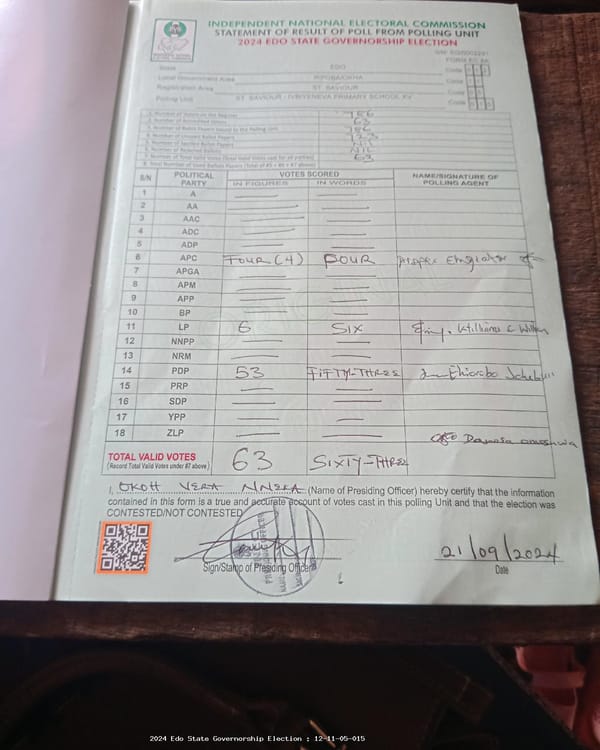 INDEPENDENT NATIONAL ELECTORAL COMMISSION
STATEMENT OF RESULT OF POLL FROM POLLING UNIT
2024 EDO STATE GOVERNORSHIP ELECTION
FORM EC 8A
State EDO Code
Local Government Area Code
Registration Area ST. SAVIOUR Code
Polling Unit Code
1. Number of Voters on the Register
2. Number of Accredited Voters 63
3. Number of Ballot Papers Issued to the Polling Unit
4. Number of Unused Ballot Papers
5. Number of Spoiled Ballot Papers NIL
6. Number of Rejected Ballots NIL
7. Number of Total Valid Votes (Total Valid Votes cast for all parties) 63
8. Total Number of Used Ballot Papers (Total of #5 + #6 + #7 above)
S/N POLITICAL PARTY VOTES SCORED IN FIGURES IN WORDS NAME/SIGNATURE OF POLLING AGENT
1 A
2 AA
3 AAC
4 ADC
5 ADP
6 APC FOUR (4) FOUR
7 APGA
8 APM
9 APP
10 BP
11 LP 6 SIX
12 NNPP
13 NRM
14 PDP 53 FIFTY-THREE
15 PRP
16 SDP
17 YPP
18 ZLP
TOTAL VALID VOTES 63 SIXTY-THREE
(Record Total Valid Votes under #7 above)
I, OKOH VERA NNEKA (Name of Presiding Officer) hereby certify that the information
contained in this form is a true and accurate account of votes cast in this polling Unit and that the election was
CONTESTED/NOT CONTESTED
21/09/2024
Sign/Stamp of Presiding Officer Date
2024 Edo State Governorship Election : 12-11-05-015